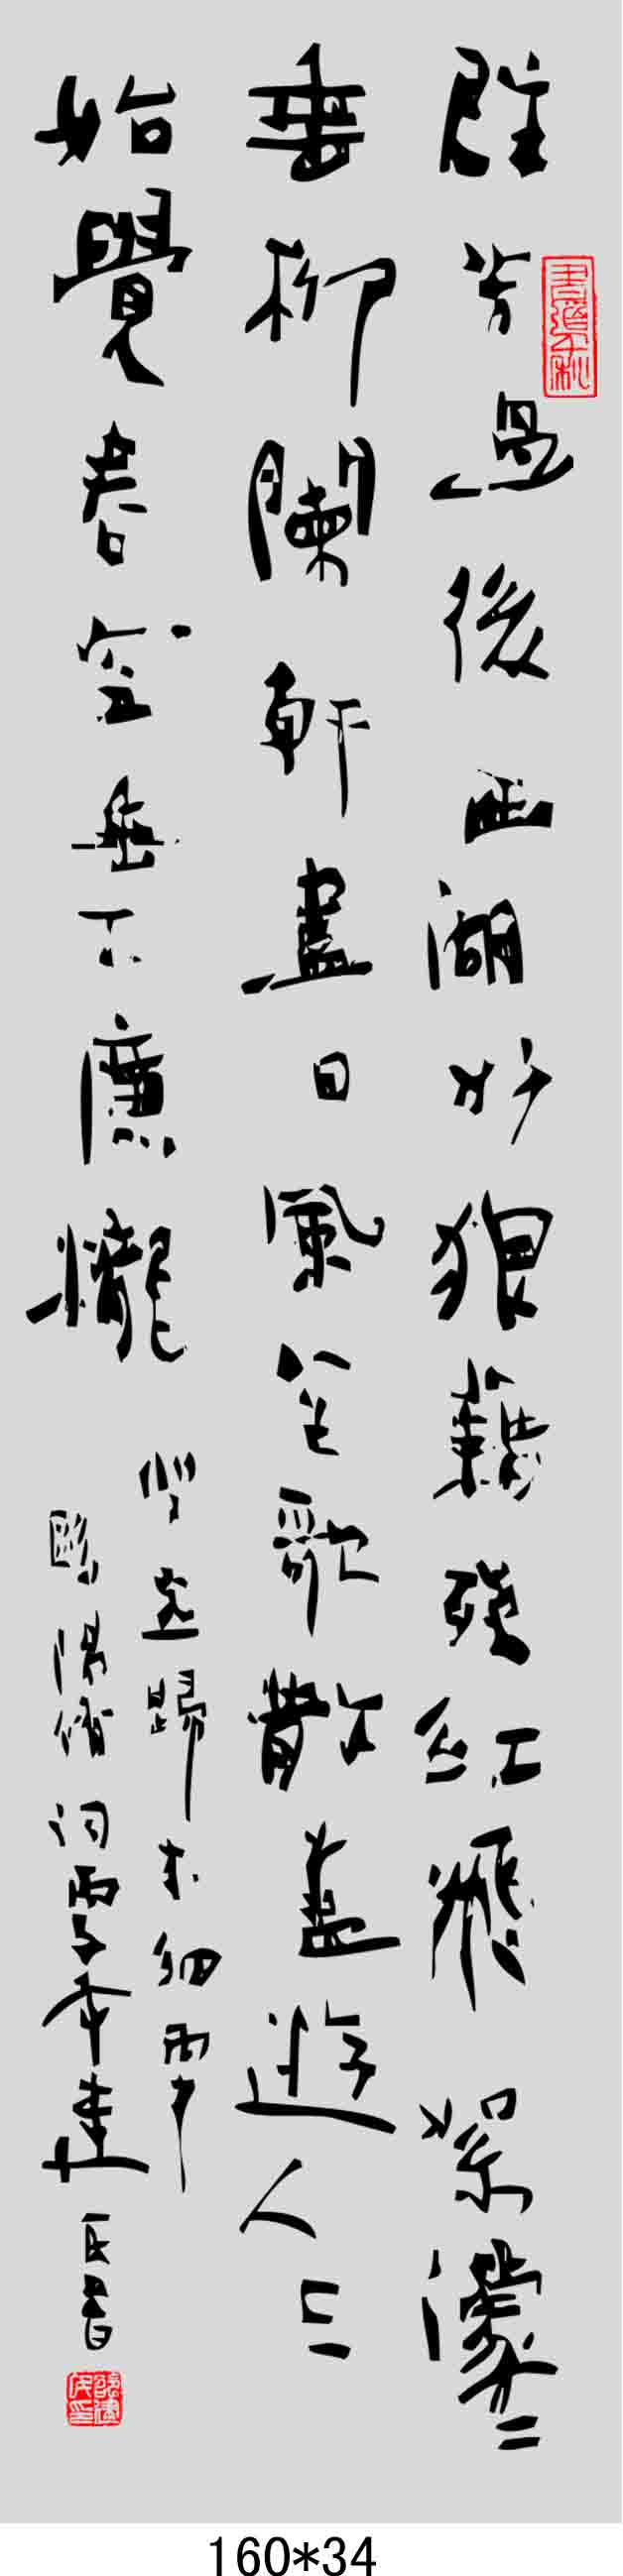 群芳過後西湖好狼藉殘紅飛絮濛〻
垂柳闌軒盡日風笙歌散盡遊人去
始覺春空垂下簾櫳
雙燕歸來細雨中
歐陽修詞建民書
160*34